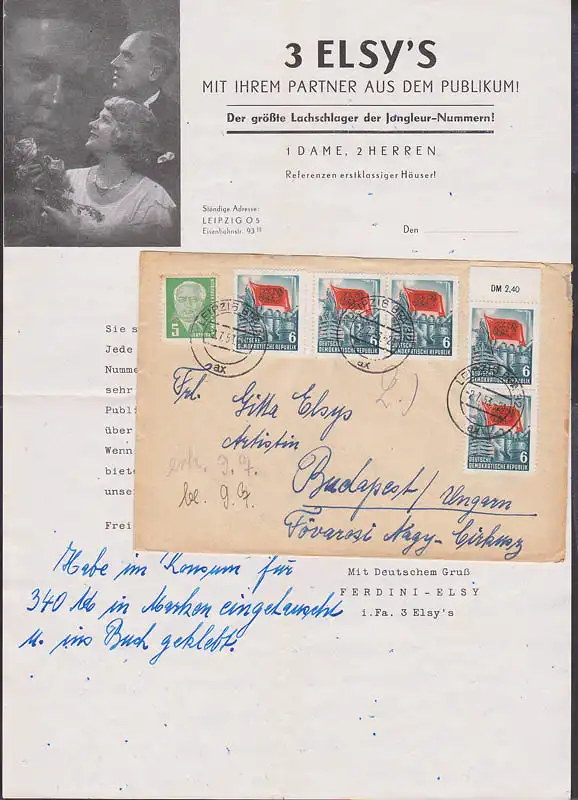 3 ELSY'S
MIT IHREM PARTNER AUS DEM PUBLIKUM!
Der größte Lachschlager der Jongleur-Nummern!
1 DAME, 2 HERREN
Referenzen erstklassiger Häuser!
Ständige Adresse:
LEIPZIG O 5
Eisenbahnstr. 93 III
Den
Sie s
Jede
Numme
sehr
Publi
über
Wenn
biete
unse
Frei
DM 2,40
5
6
6
6
6
6
DEUTSCHE
DEMOKRATISCHE REPUBLIK
DEUTSCHE
DEMOKRATISCHE REPUBLIK
DEUTSCHE
DEMOKRATISCHE REPUBLIK
DEMOKRATISCHE REPUBLIK
DEUTSCHE
DEMOKRATISCHE REPUBLIK
LEIPZIG
ax
LEIPZIG
ax
LEIPZIG
ax
Frl. Gitta Elsys
Artistin
Budapest/Ungarn
Fövarosi Nagy-Cirkusz
2.)
erh. 9.7.
be. 9.7.
Mit Deutschem Gruß
FERDINI-ELSY
i.Fa. 3 Elsy's
Habe im Konsum für
340 M in Marken eingetauscht
u. ins Buch geklebt.